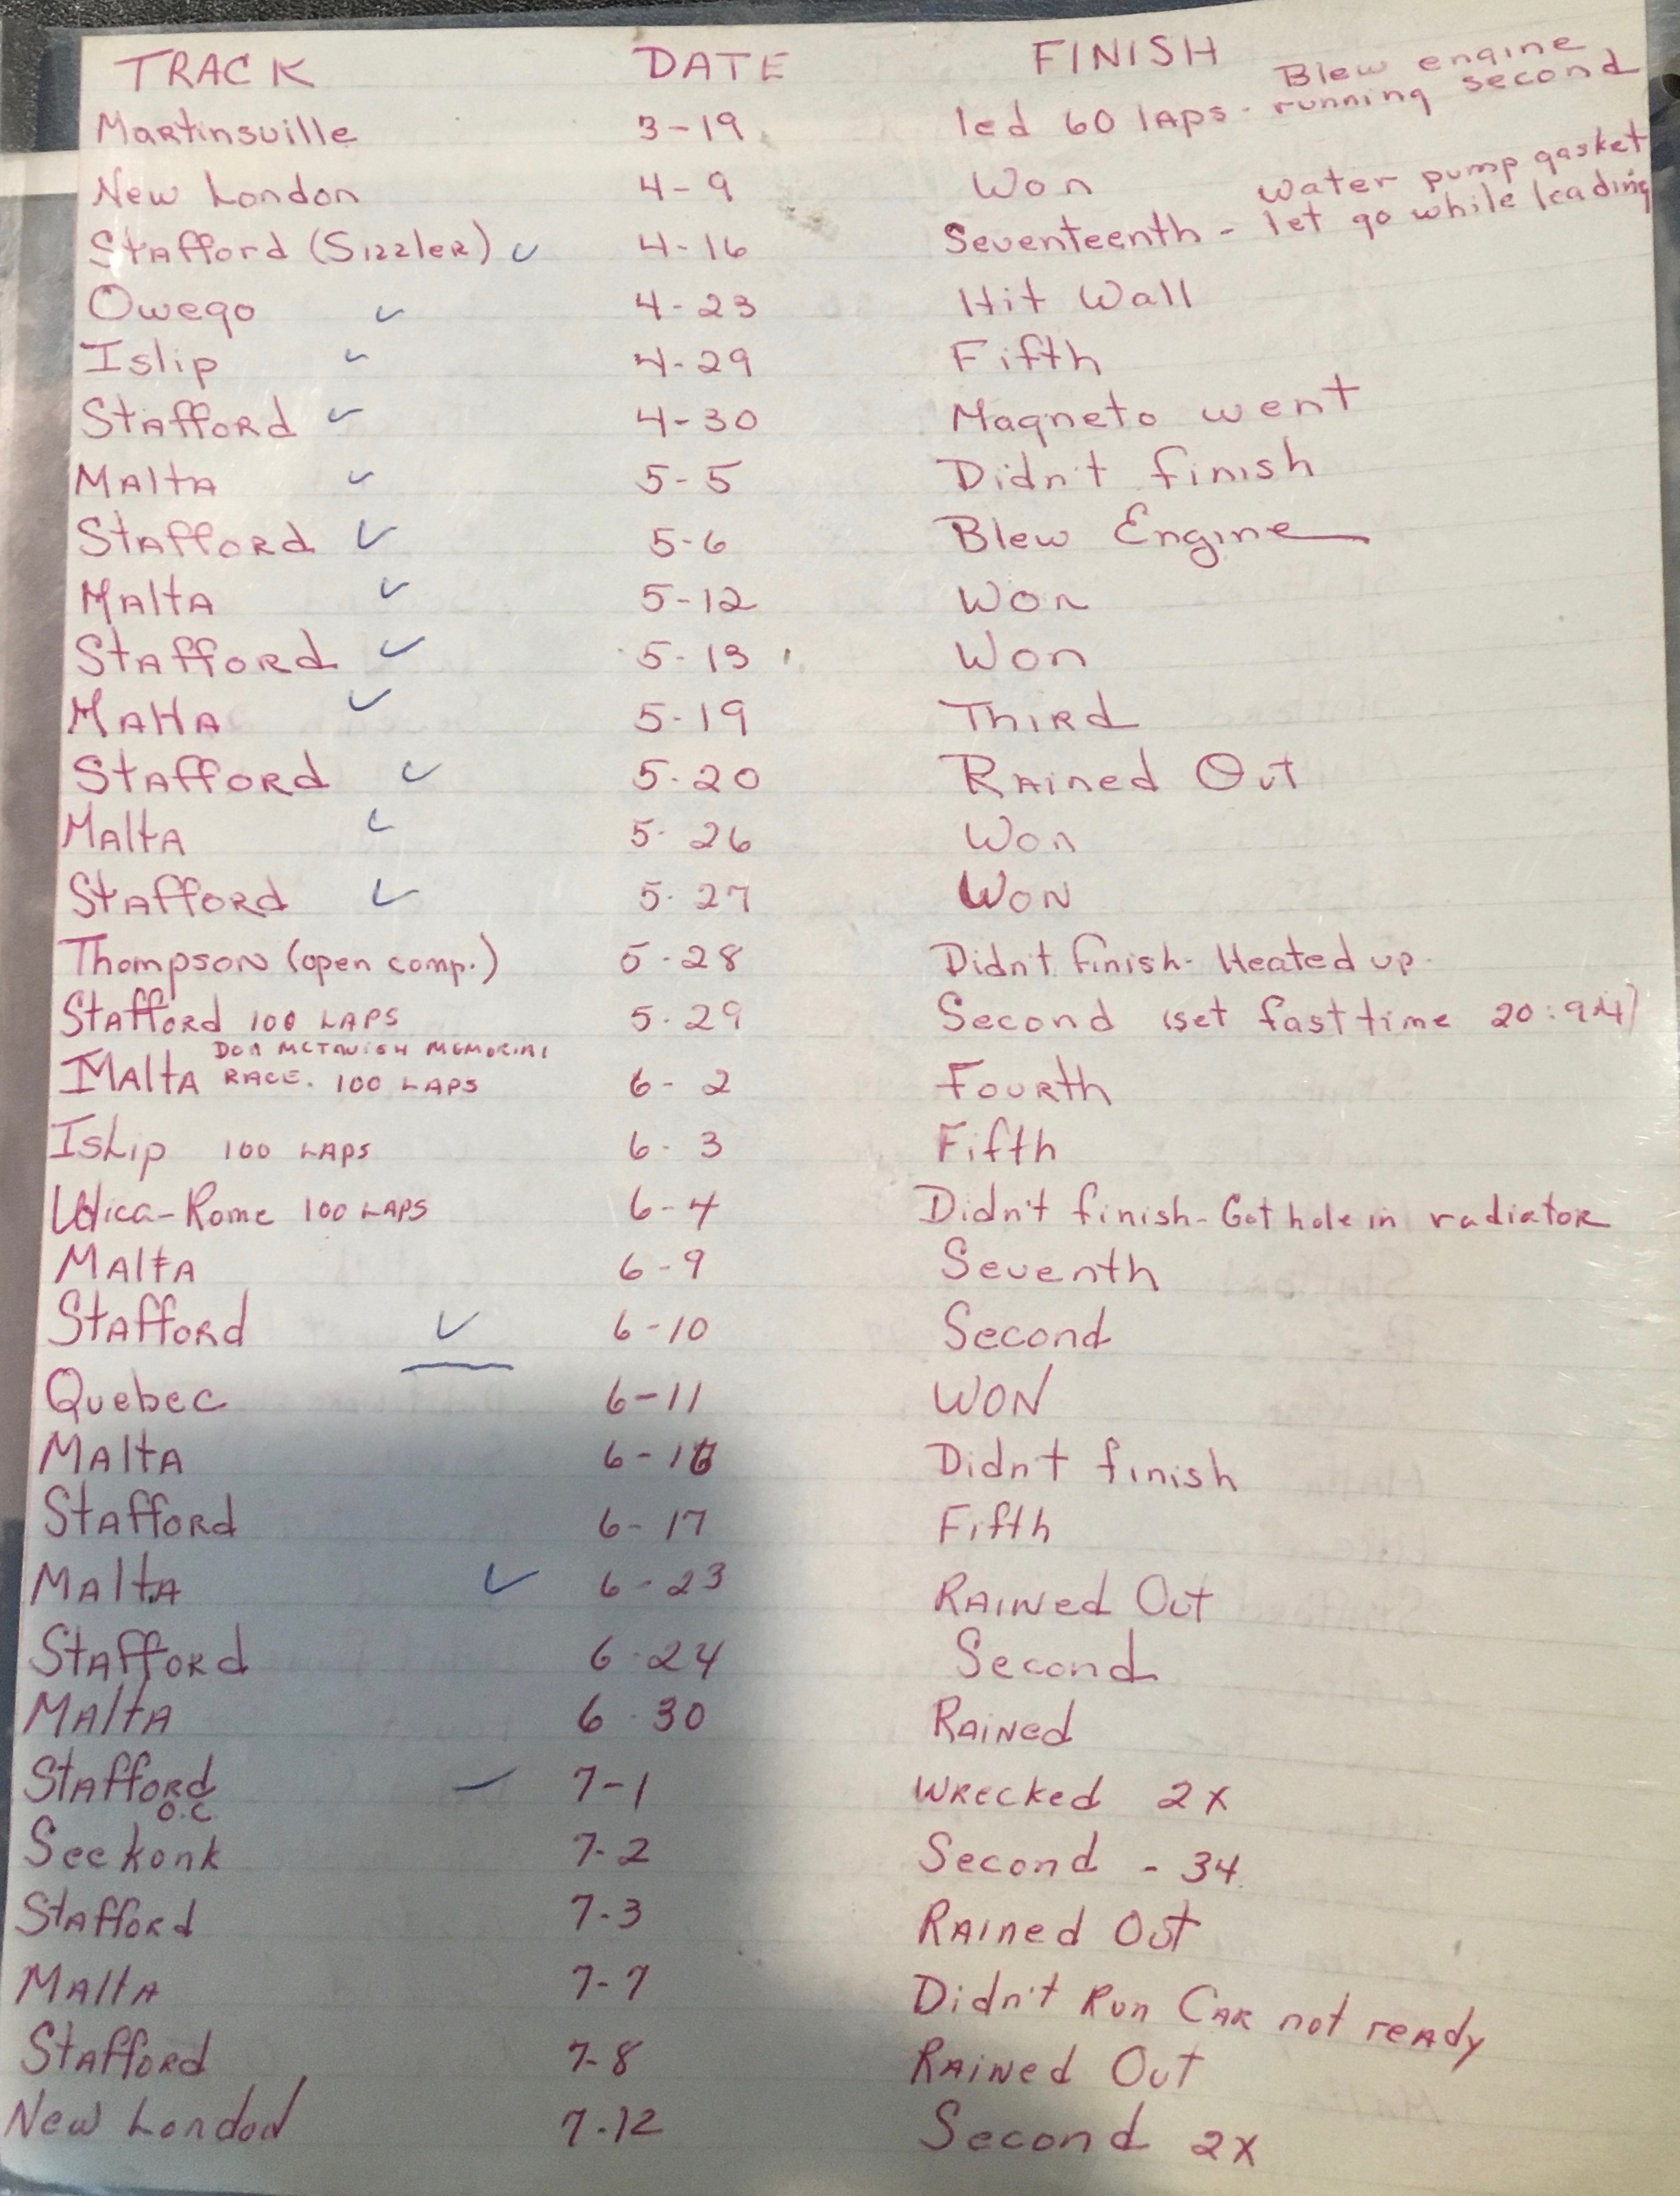 TRACK DATE FINISH
Blew engine
Martinsville 3-19 led 60 laps - running second
New London 4-9 Won
water pump gasket
Stafford (Sizzler) ✓ 4-16 Seventeenth - let go while leading
Owego ✓ 4-23 Hit Wall
Islip ✓ 4-29 Fifth
Stafford ✓ 4-30 Magneto went
Malta ✓ 5-5 Didn't finish
Stafford ✓ 5-6 Blew Engine
Malta ✓ 5-12 Won
Stafford ✓ 5-13 Won
Malta ✓ 5-19 Third
Stafford ✓ 5-20 Rained Out
Malta ✓ 5-26 Won
Stafford ✓ 5-27 Won
Thompson (open comp.) 5-28 Didn't finish - Heated up.
Stafford 100 LAPS 5-29 Second (set fast time 20:94)
DON MCTAVISH MEMORIAL
Malta RACE. 100 LAPS 6-2 Fourth
Islip 100 LAPS 6-3 Fifth
Utica-Rome 100 LAPS 6-4 Didn't finish - Got hole in radiator
Malta 6-9 Seventh
Stafford ✓ 6-10 Second
Quebec 6-11 WON
Malta 6-16 Didn't finish
Stafford 6-17 Fifth
Malta ✓ 6-23 Rained Out
Stafford 6-24 Second
Malta 6-30 Rained
Stafford ✓ 7-1 Wrecked 2x
O.C
Seekonk 7-2 Second - 34
Stafford 7-3 Rained Out
Malta 7-7 Didn't Run Car not ready
Stafford 7-8 Rained Out
New London 7-12 Second 2x